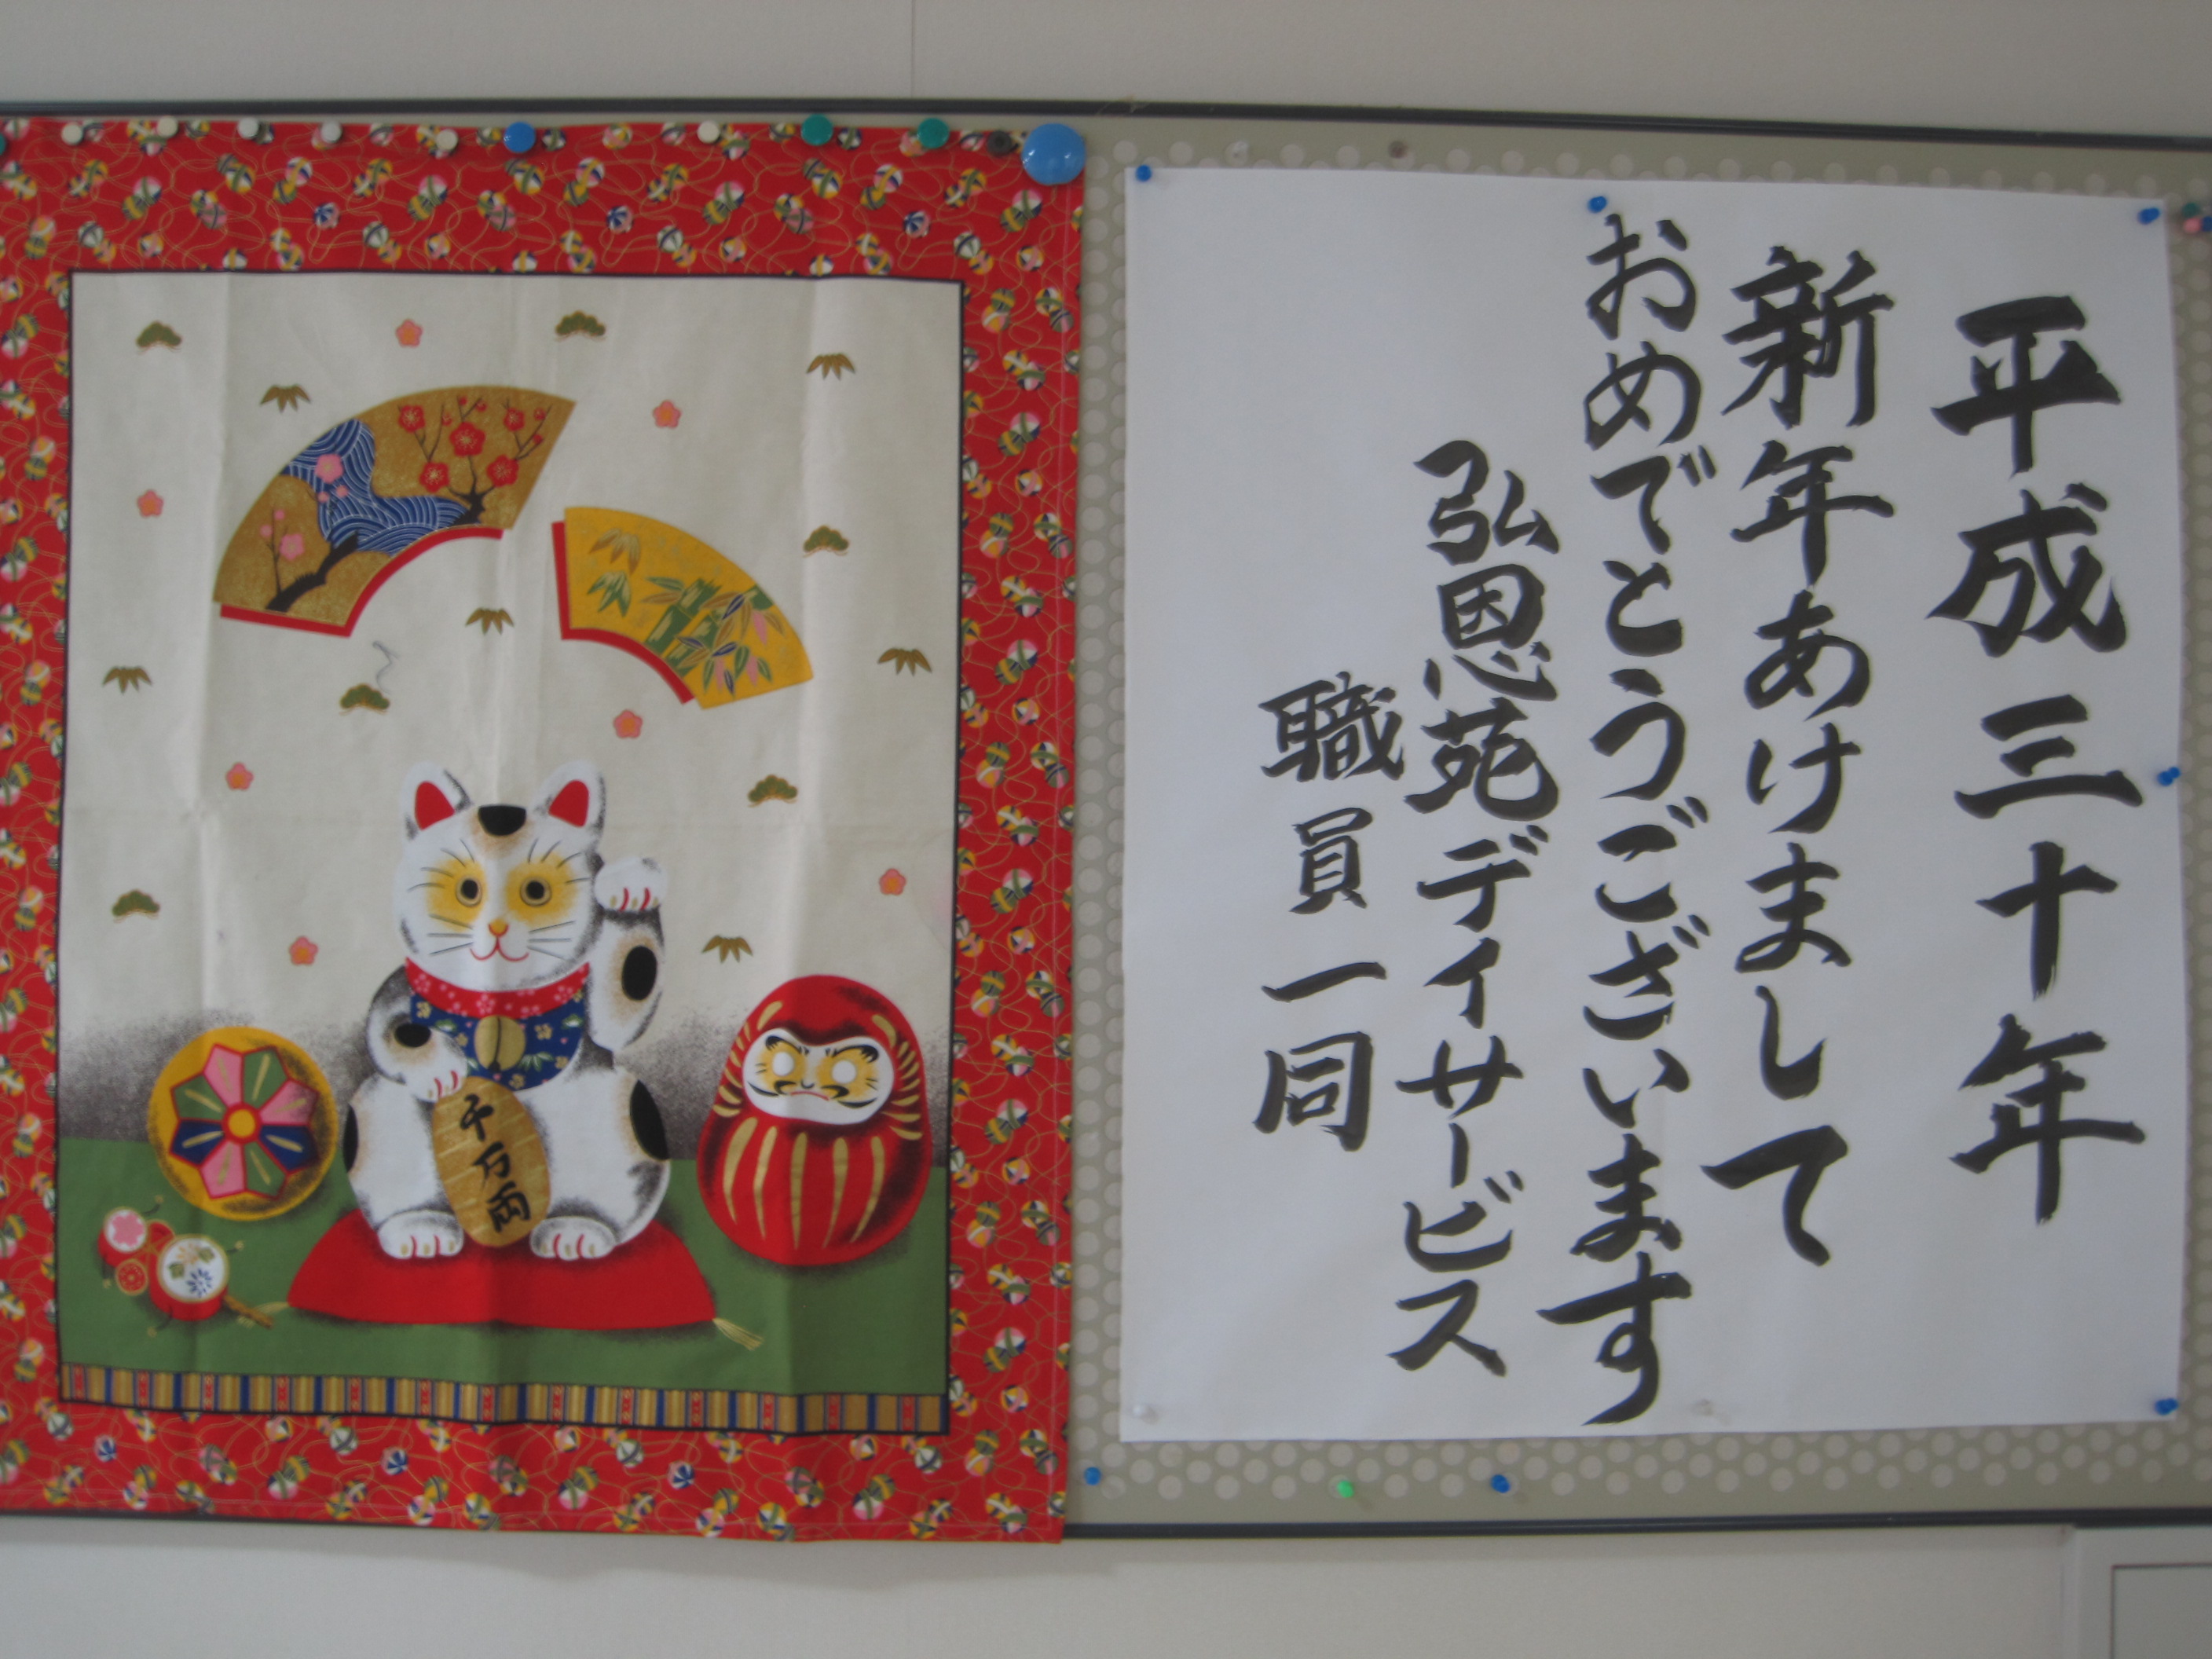 平成三十年
新年あけまして
おめでとうございます
弘恩苑デイサービス
職員一同
千万両